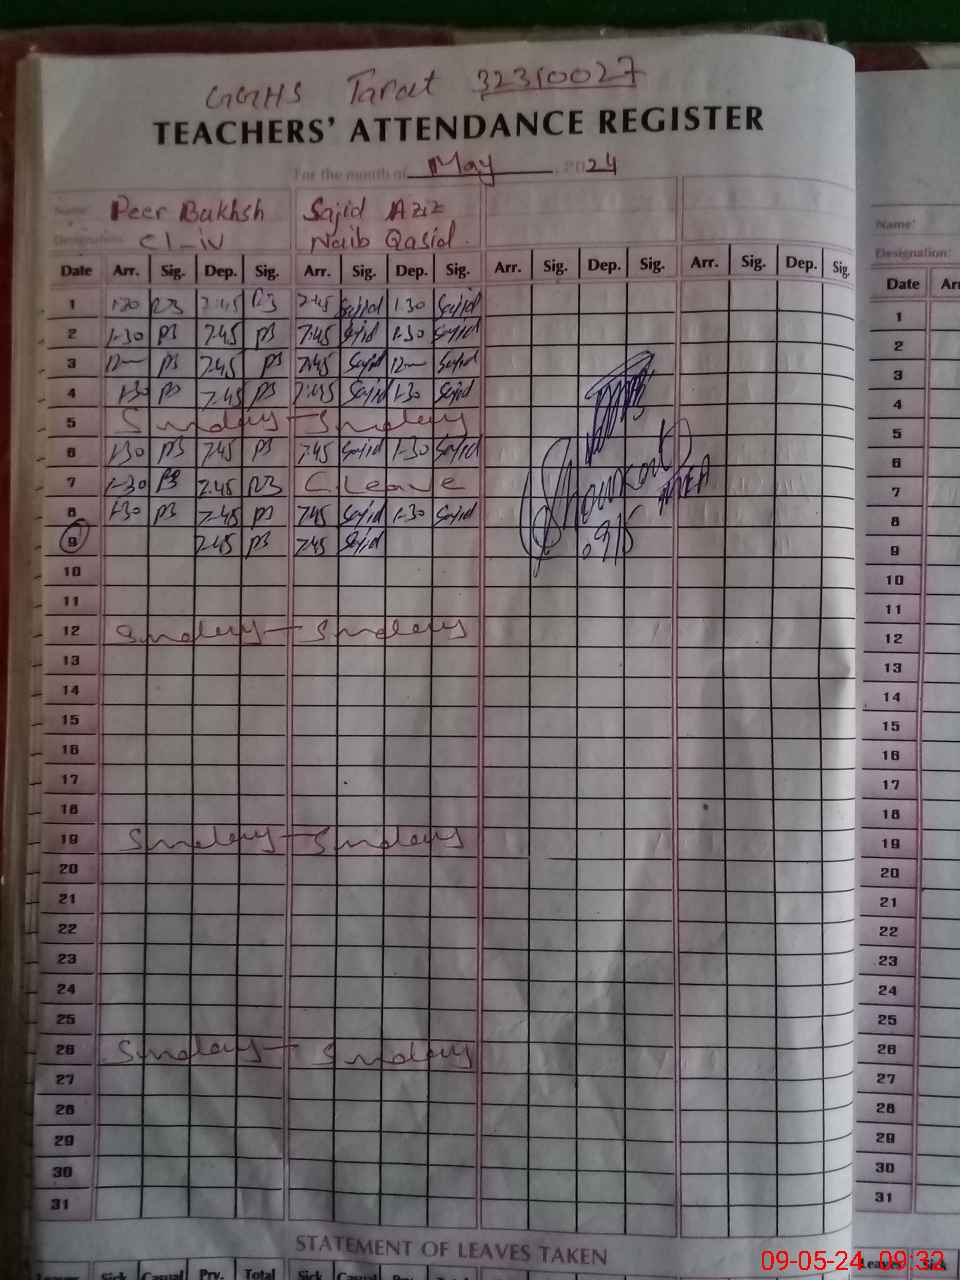 GGHS Tarat 32310027
TEACHERS' ATTENDANCE REGISTER
For the month of May, 2024
Name: Peer Bukhsh Sajid Aziz
Designation: Cl-iv Naib Qasid.
Date Arr. Sig. Dep. Sig. Arr. Sig. Dep. Sig. Arr. Sig. Dep. Sig. Arr. Sig. Dep. Sig.
1 1-30 PB 7:45 PB 7:45 Sajid 1-30 Sajid
2 1-30 PB 7:45 PB 7:45 Sajid 1-30 Sajid
3 12— PB 7:45 PB 7:45 Sajid 12— Sajid
4 1-30 PB 7:45 PB 7:45 Sajid 1-30 Sajid
5 Sunday — Sunday
6 1-30 PB 7:45 PB 7:45 Sajid 1-30 Sajid
7 1-30 PB 7:45 PB C. Leave
8 1-30 PB 7:45 PB 7:45 Sajid 1-30 Sajid
9 7:45 PB 7:45 Sajid
09/5
10
11
12 Sunday — Sunday
13
14
15
16
17
18
19 Sunday — Sunday
20
21
22
23
24
25
26 Sunday — Sunday
27
28
29
30
31
STATEMENT OF LEAVES TAKEN
Leaves Sick Casual Prv. Total Sick Casual
Name:
Designation:
Date
1
2
3
4
5
6
7
8
9
10
11
12
13
14
15
16
17
18
19
20
21
22
23
24
25
26
27
28
29
30
31
Leaves Sick
09-05-24 09:32